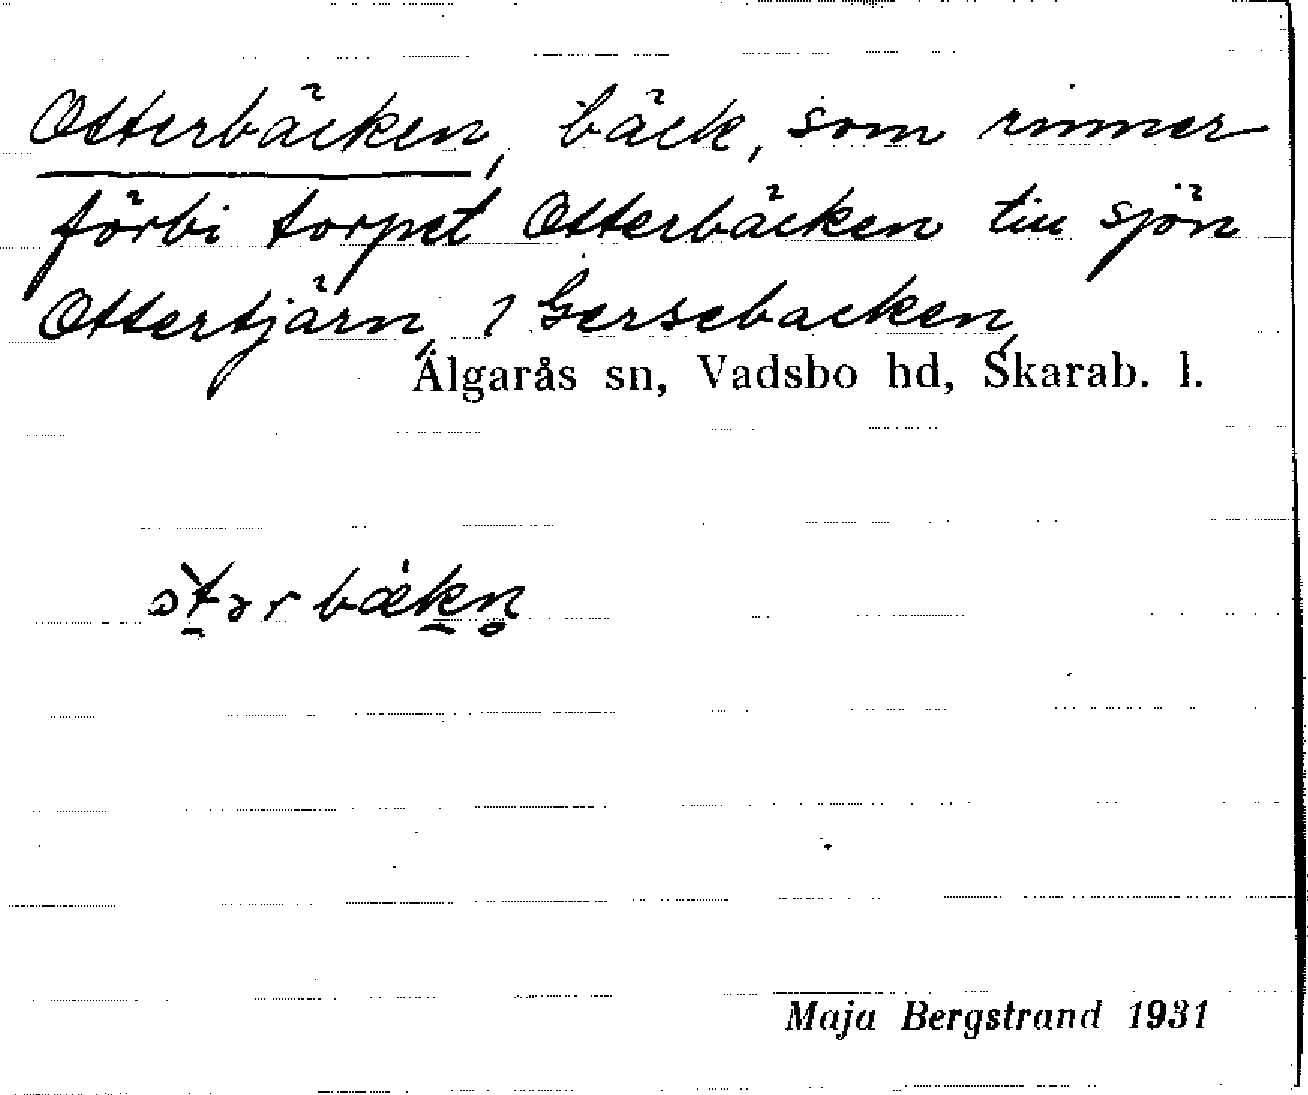 Otterbäcken, bäck, som rinner
förbi torpet Otterbäcken till sjön
Ottertjärn, i Gersebacken,
Älgarås sn, Vadsbo hd, Skarab. l.
ɔ̀t̠ərbæ̍k̠n̥
Maja Bergstrand 1931